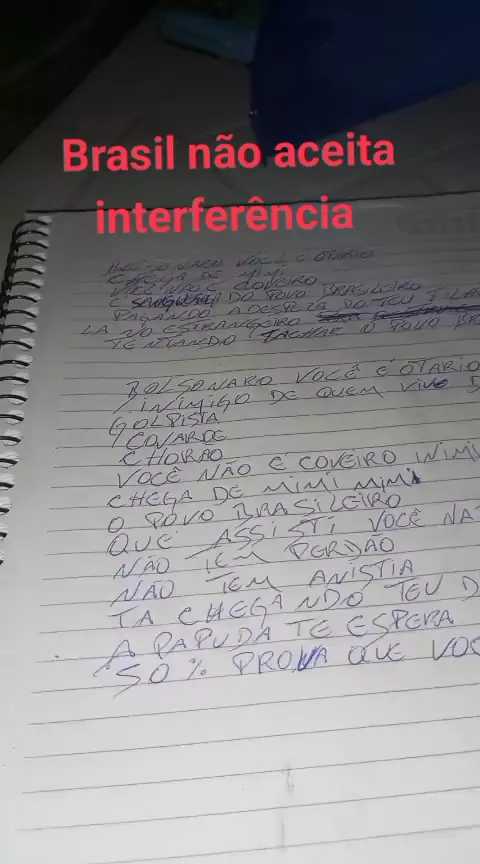 Brasil não aceita
interferência
BOLSONARO VOCÊ É OTARIO
CHEGA DE MIMI
VOCÊ NÃO É COVEIRO
É DO POVO BRASILEIRO
PAGANDO A DESPEZA DO TEU FILH
LA NO ESTRANGEIRO
TENTANDO TACHAR O POVO BR
BOLSONARO VOCÊ É OTARIO
INIMIGO DE QUEM VIVE D
GOLPISTA
COVARDE
CHORÃO
VOCÊ NÃO É COVEIRO INIMI
CHEGA DE MIMI MIMI
O POVO BRASILEIRO
QUE ASSISTI VOCÊ NA
NÃO TEM PERDÃO
NÃO TEM ANISTIA
TA CHEGANDO TEU D
A PAPUDA TE ESPERA
50% PROVA QUE VOC